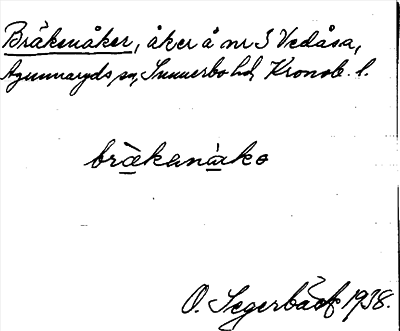 Bräkenåker, åker å nr 3 Vedåsa,
Agunnaryds sn, Sunnerbo hd, Kronob. l.
bräkanåkə
O. Segerbäck 1938.